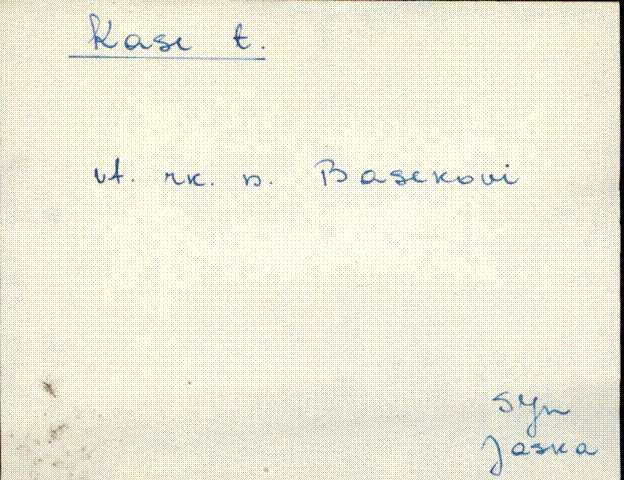 Kase t.
vt. rk. s. Basekovi
Syn
Jaska